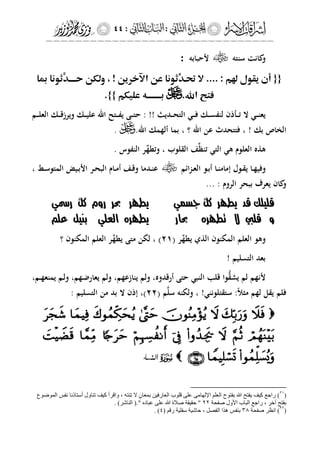 : ٤٤ :
وكانت سنته ﷺ لأحبابه :
{{ أن يقول لهم : .... لا تحدِّثونا عن الآخرين ! ، ولكن حـــدِّثونا بما
فتح الله بـــه عليكم }}.
يعنـــي لا تــأذن لنفســـك فـــي التحـــديث !! : حتـــى يفـــتح الله عليـــك ويرزقـــك العلـــم
الخاص بك ! ، فتتحدث عن الله ؟ ، بما ألهمك الله .
هذه العلوم هي التي تنظِّف القلوب ، وتطهِّر النفوس .
وفيهـا يقـول إمامنـا أبـو العـزائم عنـدما وقـف أمـام البحـر الأبـيض المتوسـط ،
وكان يعرف ببحر الروم : ...
قليلك قد يطهر كل جسمي يطهره بحر روم كل رسمي
و قلبي لا تطهره بحار يطهره العلي بنيل علم
وهو العلم المكنون الذي يطهِّر (٢١) ، لكن متى يطهِّر العلم المكنون ؟
بعد التسليم !
لأنهم لم يشقُّوا قلب النبي حتى أرقدوه، ولم ينازعهم، ولم يعارضهم، ولم يمنعهـم،
فلم يقل لهم مثلاً: ستقتلونني! ، ولكنه سلَّم (٢٢)، إذن لا بد من التسليم :
فَلَا وَرَبِّكَ لَا يُؤْمِنُونَ حَتَّىٰ يُحَكِّمُوكَ فِيمَا شَجَرَ
بَيْنَهُمْ ثُمَّ لَا يَجِدُوا فِي أَنفُسِهِمْ حَرَجًا مِّمَّا قَضَيْتَ
وَيُسَلِّمُوا تَسْلِيمًا
(٢١) راجع كيف يفتح الله بفتوح العلم الإلهامي على قلوب العارفين بمعان لا تنته ، واقرأ كيف تناول أستاذنا نفس الموضوع
بفتح آخر ، راجع الباب الأول صفحة ٢٢ " حقيقة صلاة الله على عباده ". (الناشر) .
(٢٢) انظر صفحة ٣٨ بنفس هذا الفصل ، حاشية سفلية رقم (٤) .